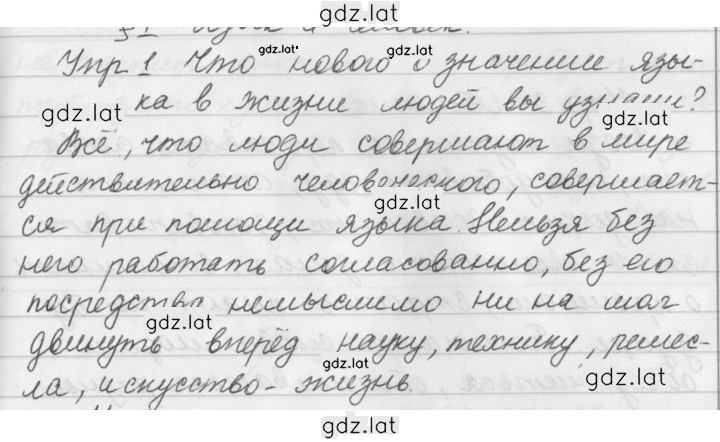 gdz.lat
§1
gdz.lat
Упр 1 Что нового о значении язы-
gdz.lat
gdz.lat
ка в жизни людей вы узнали?
gdz.lat
Всё, что люди совершают в мире
действительно человеческого, совершает-
gdz.lat
ся при помощи языка. Нельзя без
него работать согласованно, без его
посредства немыслимо ни на шаг
gdz.lat
двинуть вперёд науку, технику, ремес-
gdz.lat
ла, искусство - жизнь.
gdz.lat
gdz.lat